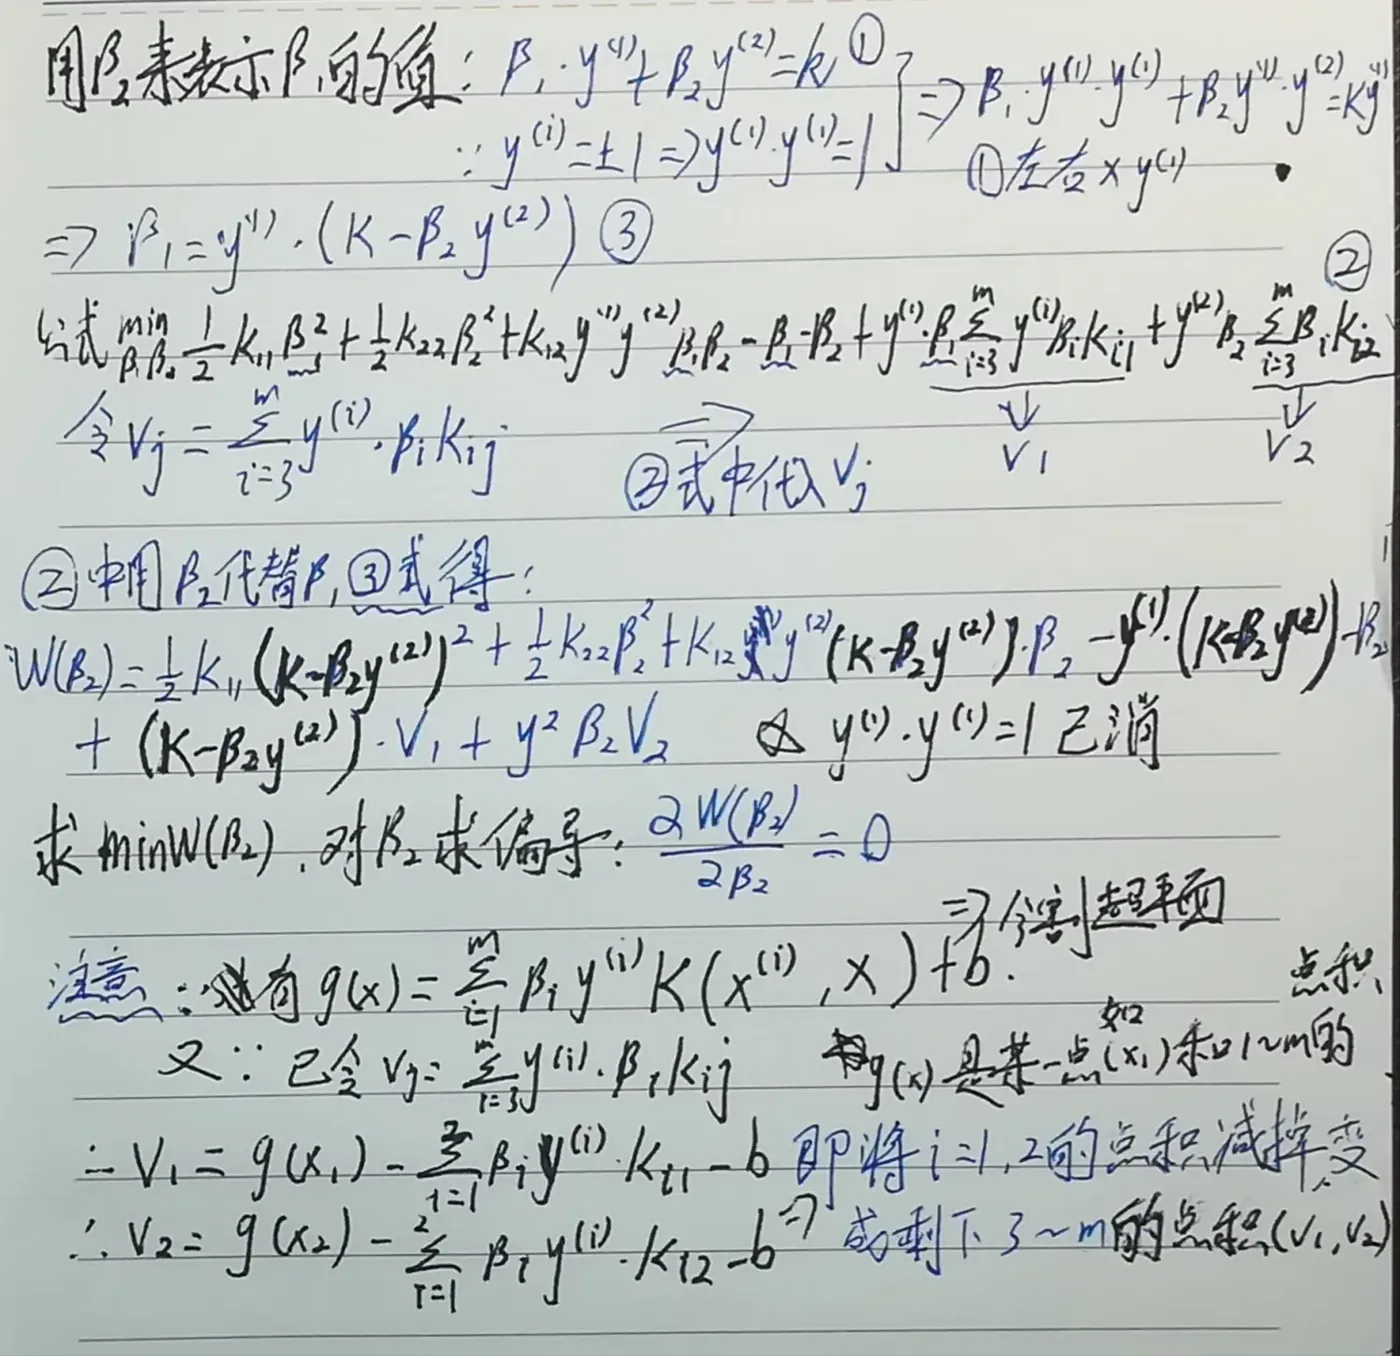 用β₂来表示β₁的值: β₁·y⁽¹⁾+β₂y⁽²⁾=k ① ⇒ β₁·y⁽¹⁾·y⁽¹⁾+β₂y⁽¹⁾·y⁽²⁾=Ky⁽¹⁾
∵ y⁽ⁱ⁾=±1⇒y⁽¹⁾·y⁽¹⁾=1 ①左右×y⁽¹⁾
⇒ β₁=y⁽¹⁾·(K-β₂y⁽²⁾) ③
②
公式 min β₁β₂ 1/2 K₁₁β₁²+1/2 K₂₂β₂²+K₁₂y⁽¹⁾y⁽²⁾β₁β₂-β₁-β₂+y⁽¹⁾·β₁ᵐ∑ᵢ₌₃y⁽ⁱ⁾βᵢKᵢ₁+y⁽²⁾β₂ᵐ∑ᵢ₌₃βᵢKᵢ₂
令Vⱼ=ᵐ∑ᵢ₌₃y⁽ⁱ⁾·βᵢKᵢⱼ ⇒ ②式中代入Vⱼ ↓V₁ ↓V₂
②中用β₂代替β₁③式得:
W(β₂)=1/2 K₁₁(K-β₂y⁽²⁾)²+1/2 K₂₂β₂²+K₁₂y⁽²⁾(K-β₂y⁽²⁾)·β₂-y⁽¹⁾·(K-β₂y⁽²⁾)-β₂
+(K-β₂y⁽²⁾)·V₁+y²β₂V₂ y⁽¹⁾·y⁽¹⁾=1已消
求minW(β₂),对β₂求偏导: ∂W(β₂)/∂β₂=0
⇒分割超平面
注意:∵有g(x)=ᵐ∑ᵢ₌₁βᵢy⁽ⁱ⁾K(x⁽ⁱ⁾,x)+b.
又∵已令Vⱼ=ᵐ∑ᵢ₌₃y⁽ⁱ⁾·βᵢKᵢⱼ g(x)是某一点如(x₁)和1~m的点积
∴V₁=g(x₁)-²∑ᵢ₌₁βᵢy⁽ⁱ⁾·Kᵢ₁-b 即将i=1,2的点积减掉,变
∴V₂=g(x₂)-²∑ᵢ₌₁βᵢy⁽ⁱ⁾·Kᵢ₂-b⇒ 成剩下3~m的点积(V₁,V₂)